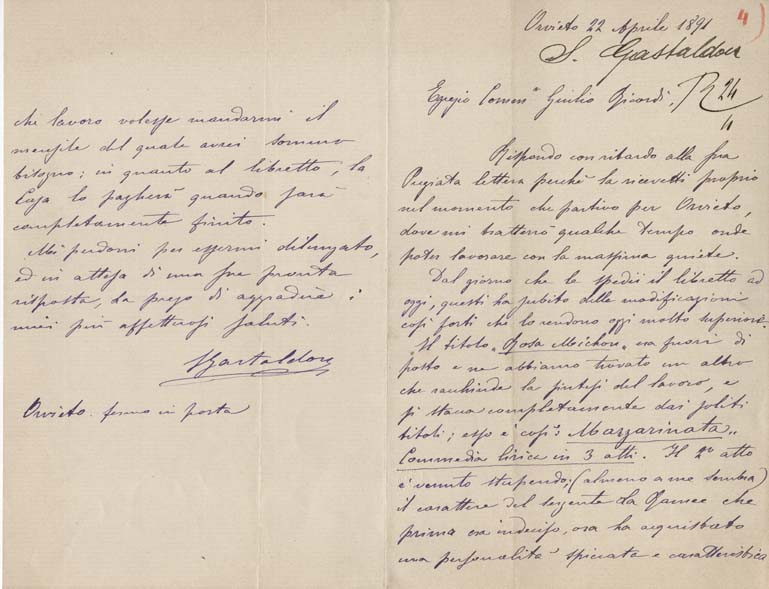 Orvieto 22 Aprile 1891
4)
S. Gastaldon
Egregio Comm.r Giulio Ricordi,
R 24/4
Rispondo con ritardo alla sua
Pregiata lettera perchè la ricevetti proprio
nel momento che partivo per Orvieto,
dove mi tratterrò qualche tempo onde
poter lavorare con la massima quiete.
Dal giorno che le spedii il libretto ad
oggi, questi ha subito delle modificazioni
così forti che lo rendono oggi molto superiore.
Il titolo "Rosa Meichon" era fuori di
posto e ne abbiamo trovato un altro
che racchiude la sintesi del lavoro, e
si stacca completamente dai soliti
titoli; esso è così: Mazzarinata,,
Commedia lirica in 3 atti. Il 2º atto
è venuto stupendo; (almeno a me sembra)
il carattere del sergente La Ramée che
prima era indeciso, ora ha acquistato
una personalità spiccata e caratteristica
chi lavoro volesse mandarmi il
mensile del quale avrei sommo
bisogno; in quanto al libretto, la
Casa lo pagherà quando sarà
completamente finito.
Mi perdoni per essermi dilungato,
ed in attesa di una sua pronta
risposta, La prego di aggradire i
miei più affettuosi saluti.
SGastaldon
Orvieto. fermo in posta